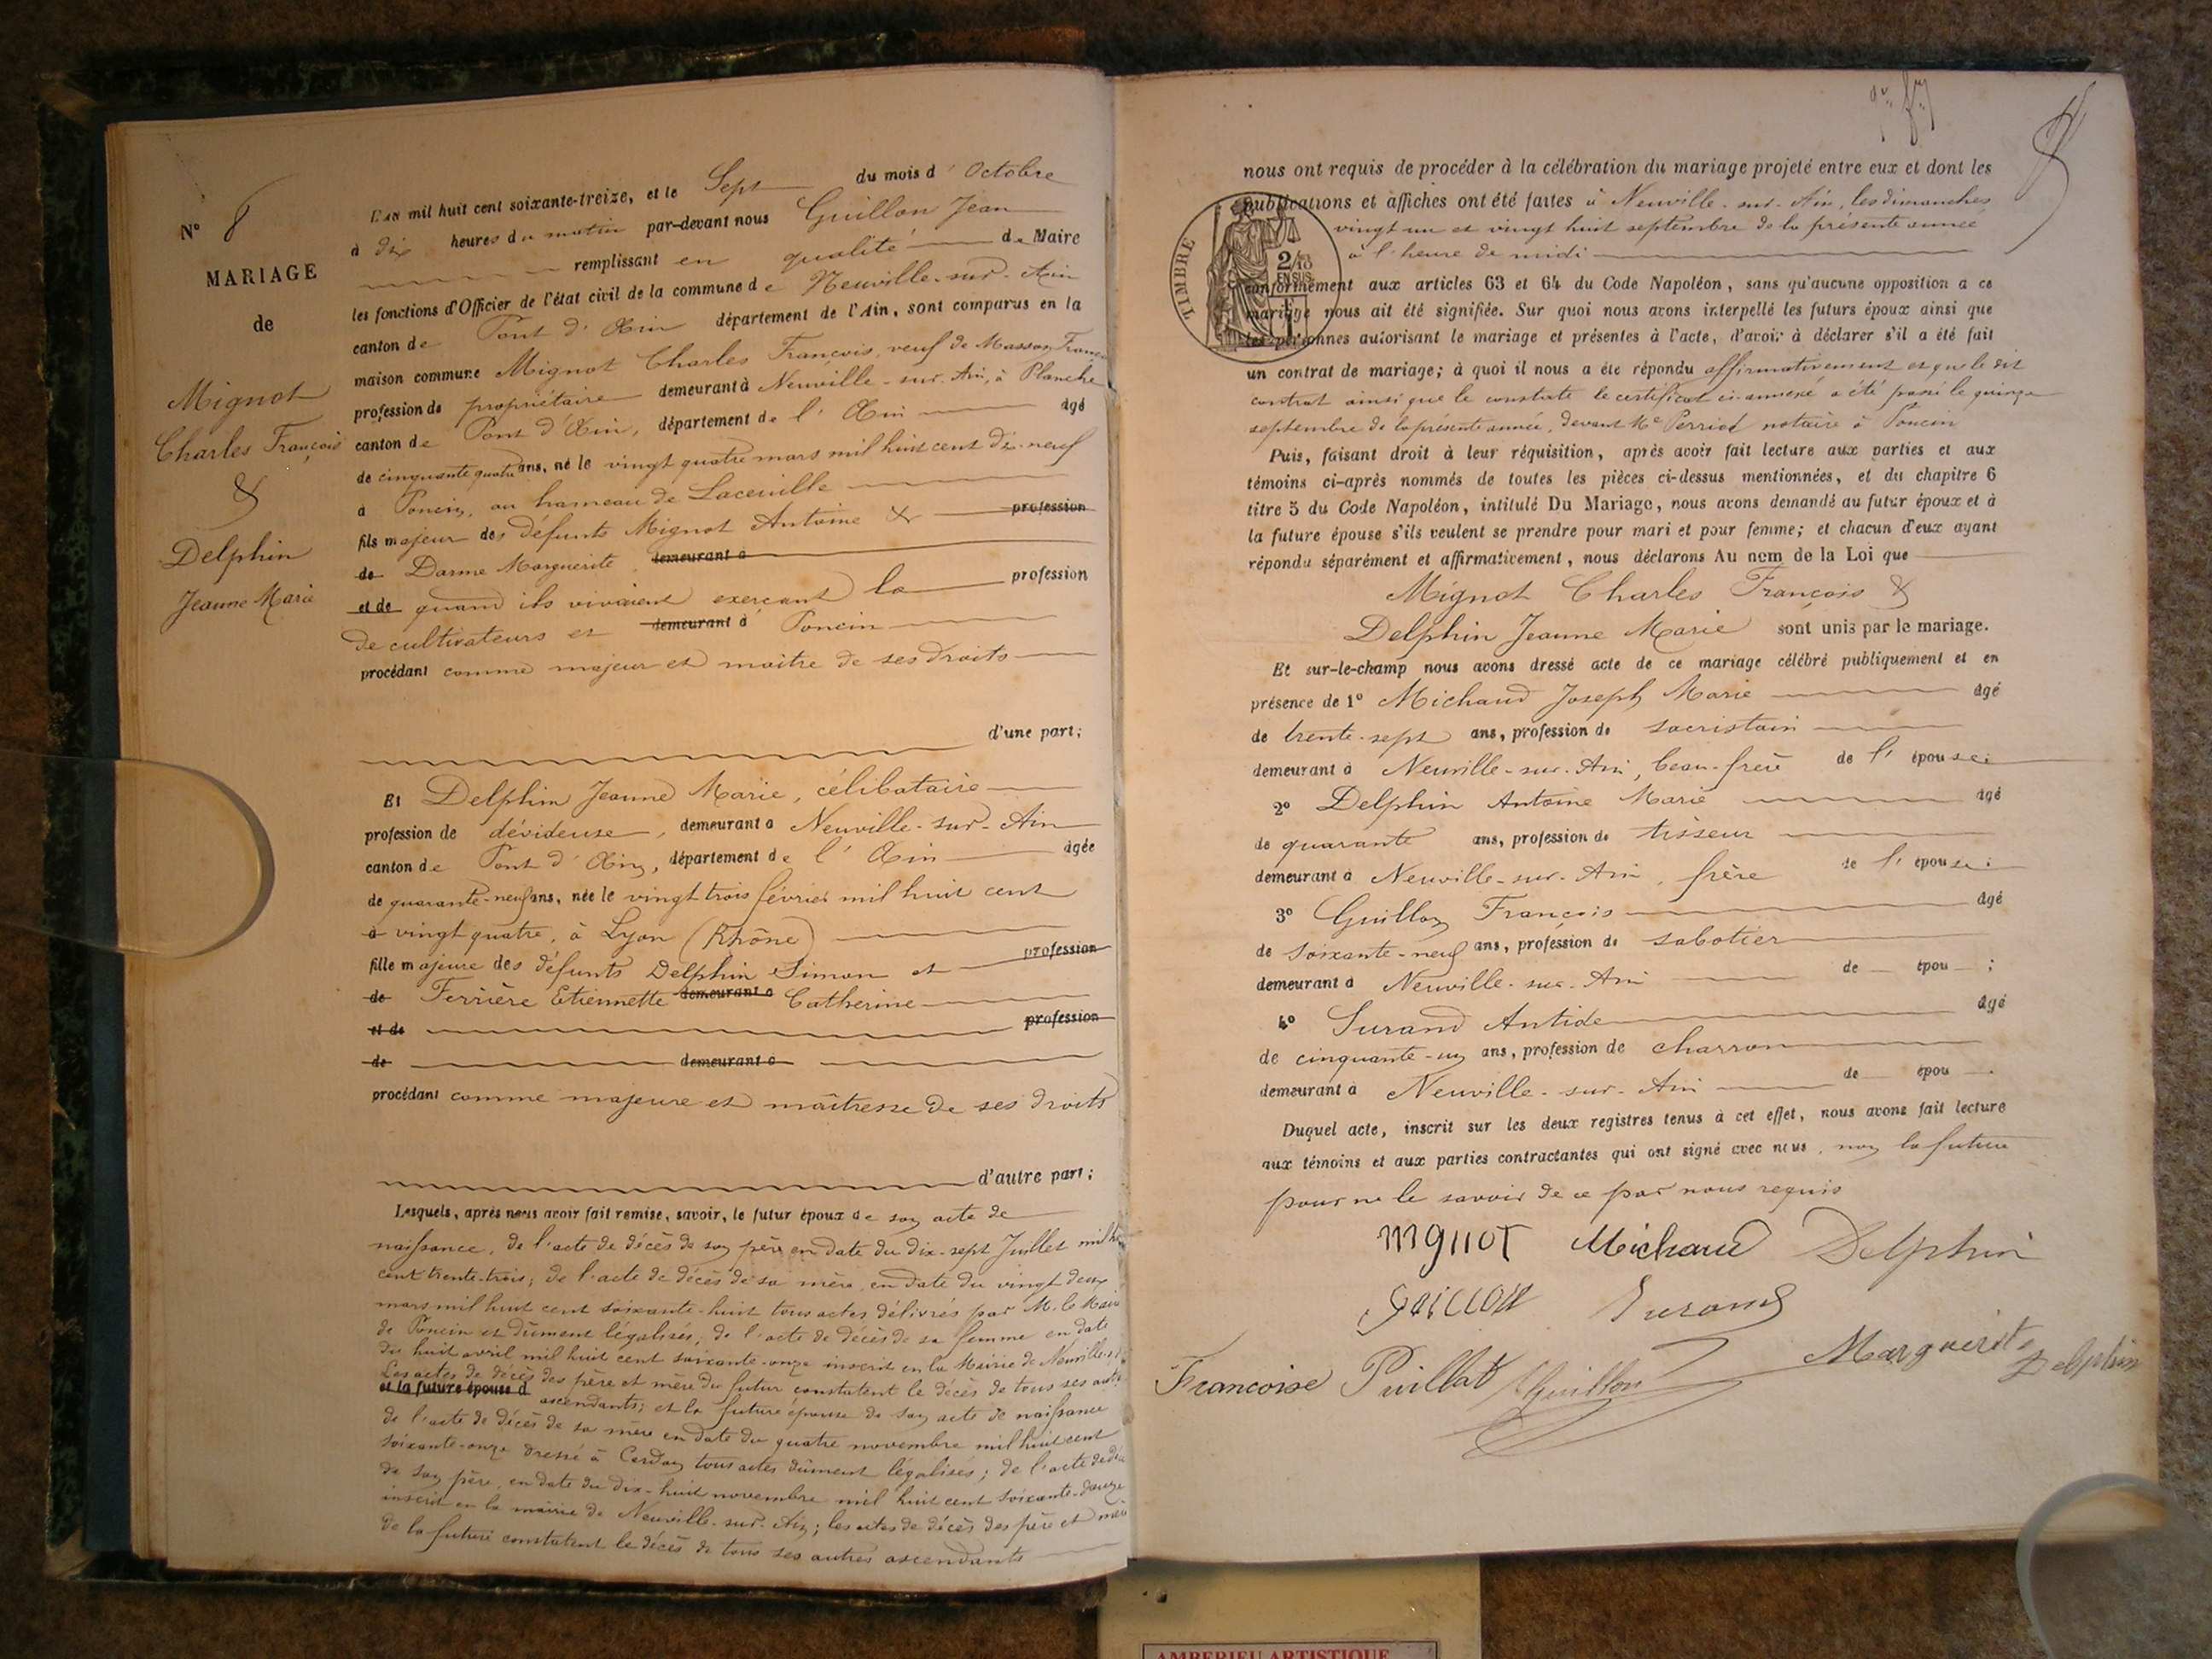 N° 8
MARIAGE
de
Mignot
Charles François
&
Delphin
Jeanne Marie
L'an mil huit cent soixante-treize, et le Sept du mois d' Octobre
à dix heures du matin par-devant nous Guillon Jean
remplissant en qualité de Maire
les fonctions d'Officier de l'état civil de la commune de Neuville-sur-Ain
canton de Pont d'Ain département de l'Ain, sont comparus en la
maison commune Mignot Charles François, veuf de Masson
profession de propriétaire demeurant à Neuville-sur-Ain, à Planche
canton de Pont d'Ain, département de l'Ain âgé
de cinquante quatre ans, né le vingt quatre mars mil huit cent dix-neuf
à Poncin, au hameau de
fils majeur des défunts Mignot Antoine & profession
de Darme Marguerite, demeurant à
et de quand ils vivaient exerçant la profession
de cultivateurs et demeurant à Poncin
procédant comme majeur et maître de ses droits
d'une part;
Et Delphin Jeanne Marie, célibataire
profession de dévideuse, demeurant à Neuville-sur-Ain
canton de Pont d'Ain, département de l'Ain âgée
de quarante-neuf ans, née le vingt trois février mil huit cent
à vingt quatre, à Lyon (Rhône)
fille majeure des défunts Delphin Simon et profession
de Ferrière Etiennette demeurant à Catherine
et de profession
de demeurant à
procédant comme majeure et maîtresse de ses droits
d'autre part;
Lesquels, après nous avoir fait remise, savoir, le futur époux de son acte de
naissance, de l'acte de décès de son père en date du dix-sept Juillet mil
cent trente-trois; de l'acte de décès de sa mère, en date du vingt deux
mars mil huit cent soixante-huit tous actes délivrés par M. le Maire
de Poncin et dûment légalisés; de l'acte de décès de sa femme en date
du huit avril mil huit cent soixante-onze inscrit en la Mairie de Neuville
Les actes de décès des père et mère du futur constatent le décès de tous ses
et la future épouse d
ascendants; et la future épouse de son acte de naissance
de l'acte de décès de sa mère en date du quatre novembre mil huit cent
soixante-onze dressé à Cerdon tous actes dûment légalisés; de l'acte de
de son père, en date du dix-huit novembre mil huit cent soixante-douze
inscrit en la mairie de Neuville-sur-Ain; les actes de décès des père et mère
de la future constatent le décès de tous ses autres ascendants
nous ont requis de procéder à la célébration du mariage projeté entre eux et dont les
publications et affiches ont été faites à Neuville-sur-Ain, les dimanches
vingt un et vingt huit septembre de la présente année
à l'heure de midi
TIMBRE
2/10
EN SUS
conformément aux articles 63 et 64 du Code Napoléon, sans qu'aucune opposition a ce
mariage nous ait été signifiée. Sur quoi nous avons interpellé les futurs époux ainsi que
les personnes autorisant le mariage et présentes à l'acte, d'avoir à déclarer s'il a été fait
un contrat de mariage; à quoi il nous a été répondu affirmativement et que le dit
contrat ainsi que le constate le certificat ci-annexé a été passé le quinze
septembre de la présente année, devant Me Perriod notaire à Poncin
Puis, faisant droit à leur réquisition, après avoir fait lecture aux parties et aux
témoins ci-après nommés de toutes les pièces ci-dessus mentionnées, et du chapitre 6
titre 5 du Code Napoléon, intitulé Du Mariage, nous avons demandé au futur époux et à
la future épouse s'ils veulent se prendre pour mari et pour femme; et chacun d'eux ayant
répondu séparément et affirmativement, nous déclarons Au nom de la Loi que
Mignot Charles François &
Delphin Jeanne Marie sont unis par le mariage.
Et sur-le-champ nous avons dressé acte de ce mariage célébré publiquement et en
présence de 1° Michaud Joseph Marie âgé
de trente-sept ans, profession de sacristain
demeurant à Neuville-sur-Ain, beau-frère de l' épouse;
2° Delphin Antoine Marie âgé
de quarante ans, profession de tisseur
demeurant à Neuville-sur-Ain, frère de l' épouse;
3° Guillon François âgé
de soixante-neuf ans, profession de sabotier
demeurant à Neuville-sur-Ain de épou ;
4° Surand Antide âgé
de cinquante-un ans, profession de charron
demeurant à Neuville-sur-Ain de épou
Duquel acte, inscrit sur les deux registres tenus à cet effet, nous avons fait lecture
aux témoins et aux parties contractantes qui ont signé avec nous, non la future
pour ne le savoir de ce par nous requis
mignot Michaud Delphin
Guillon Surand
Marguerite Delphin
Francoise Puillat Guillon
AMBERIEU ARTISTIQUE